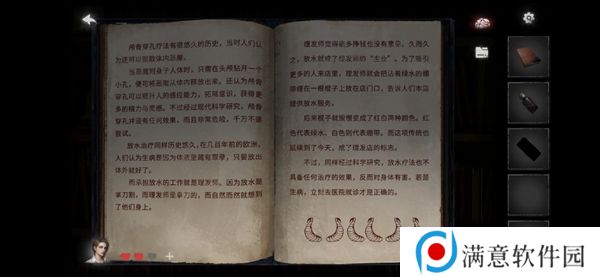 颅骨穿孔疗法有很悠久的历史，当时人们认
为还可以驱散体内恶魔。
当恶魔附身于人体时，只需在头颅钻开一个
小孔，便可将恶魔从体内释放出来。还认为颅骨
穿孔可以提升人的感应能力，拓展意识，获得更
多的精力与灵感。不过经过现代科学研究，颅骨
穿孔并没有任何效果，而且非常危险，千万不要
尝试。
放水治疗同样历史悠久，在几百年前的欧洲，
人们认为生病是因为体液里藏有罪孽，只要放出
体外就好了。
而承担放水的工作就是理发师。因为放水要
拿刀割，而理发师是拿刀的，而自然而然就想到
了他们身上。
理发师觉得能多挣钱也没有意见。久而久
之，放水就成了理发师的“主业”。为了吸引
更多的人来店里，理发师就会把沾着绿水的绷
带缠在一根棍子上放在店门口，告诉人们本店
提供放水服务。
后来棍子就慢慢变成了红白两种颜色。红
色代表绿水，白色则代表绷带。而这项传统也
延续到了今天，成了理发店的标志。
不过，同样经过科学研究，放水疗法也不
具备任何治疗的效果，反而对身体有害。若是
生病，立刻去医院就诊才是正确的。
满意软件园